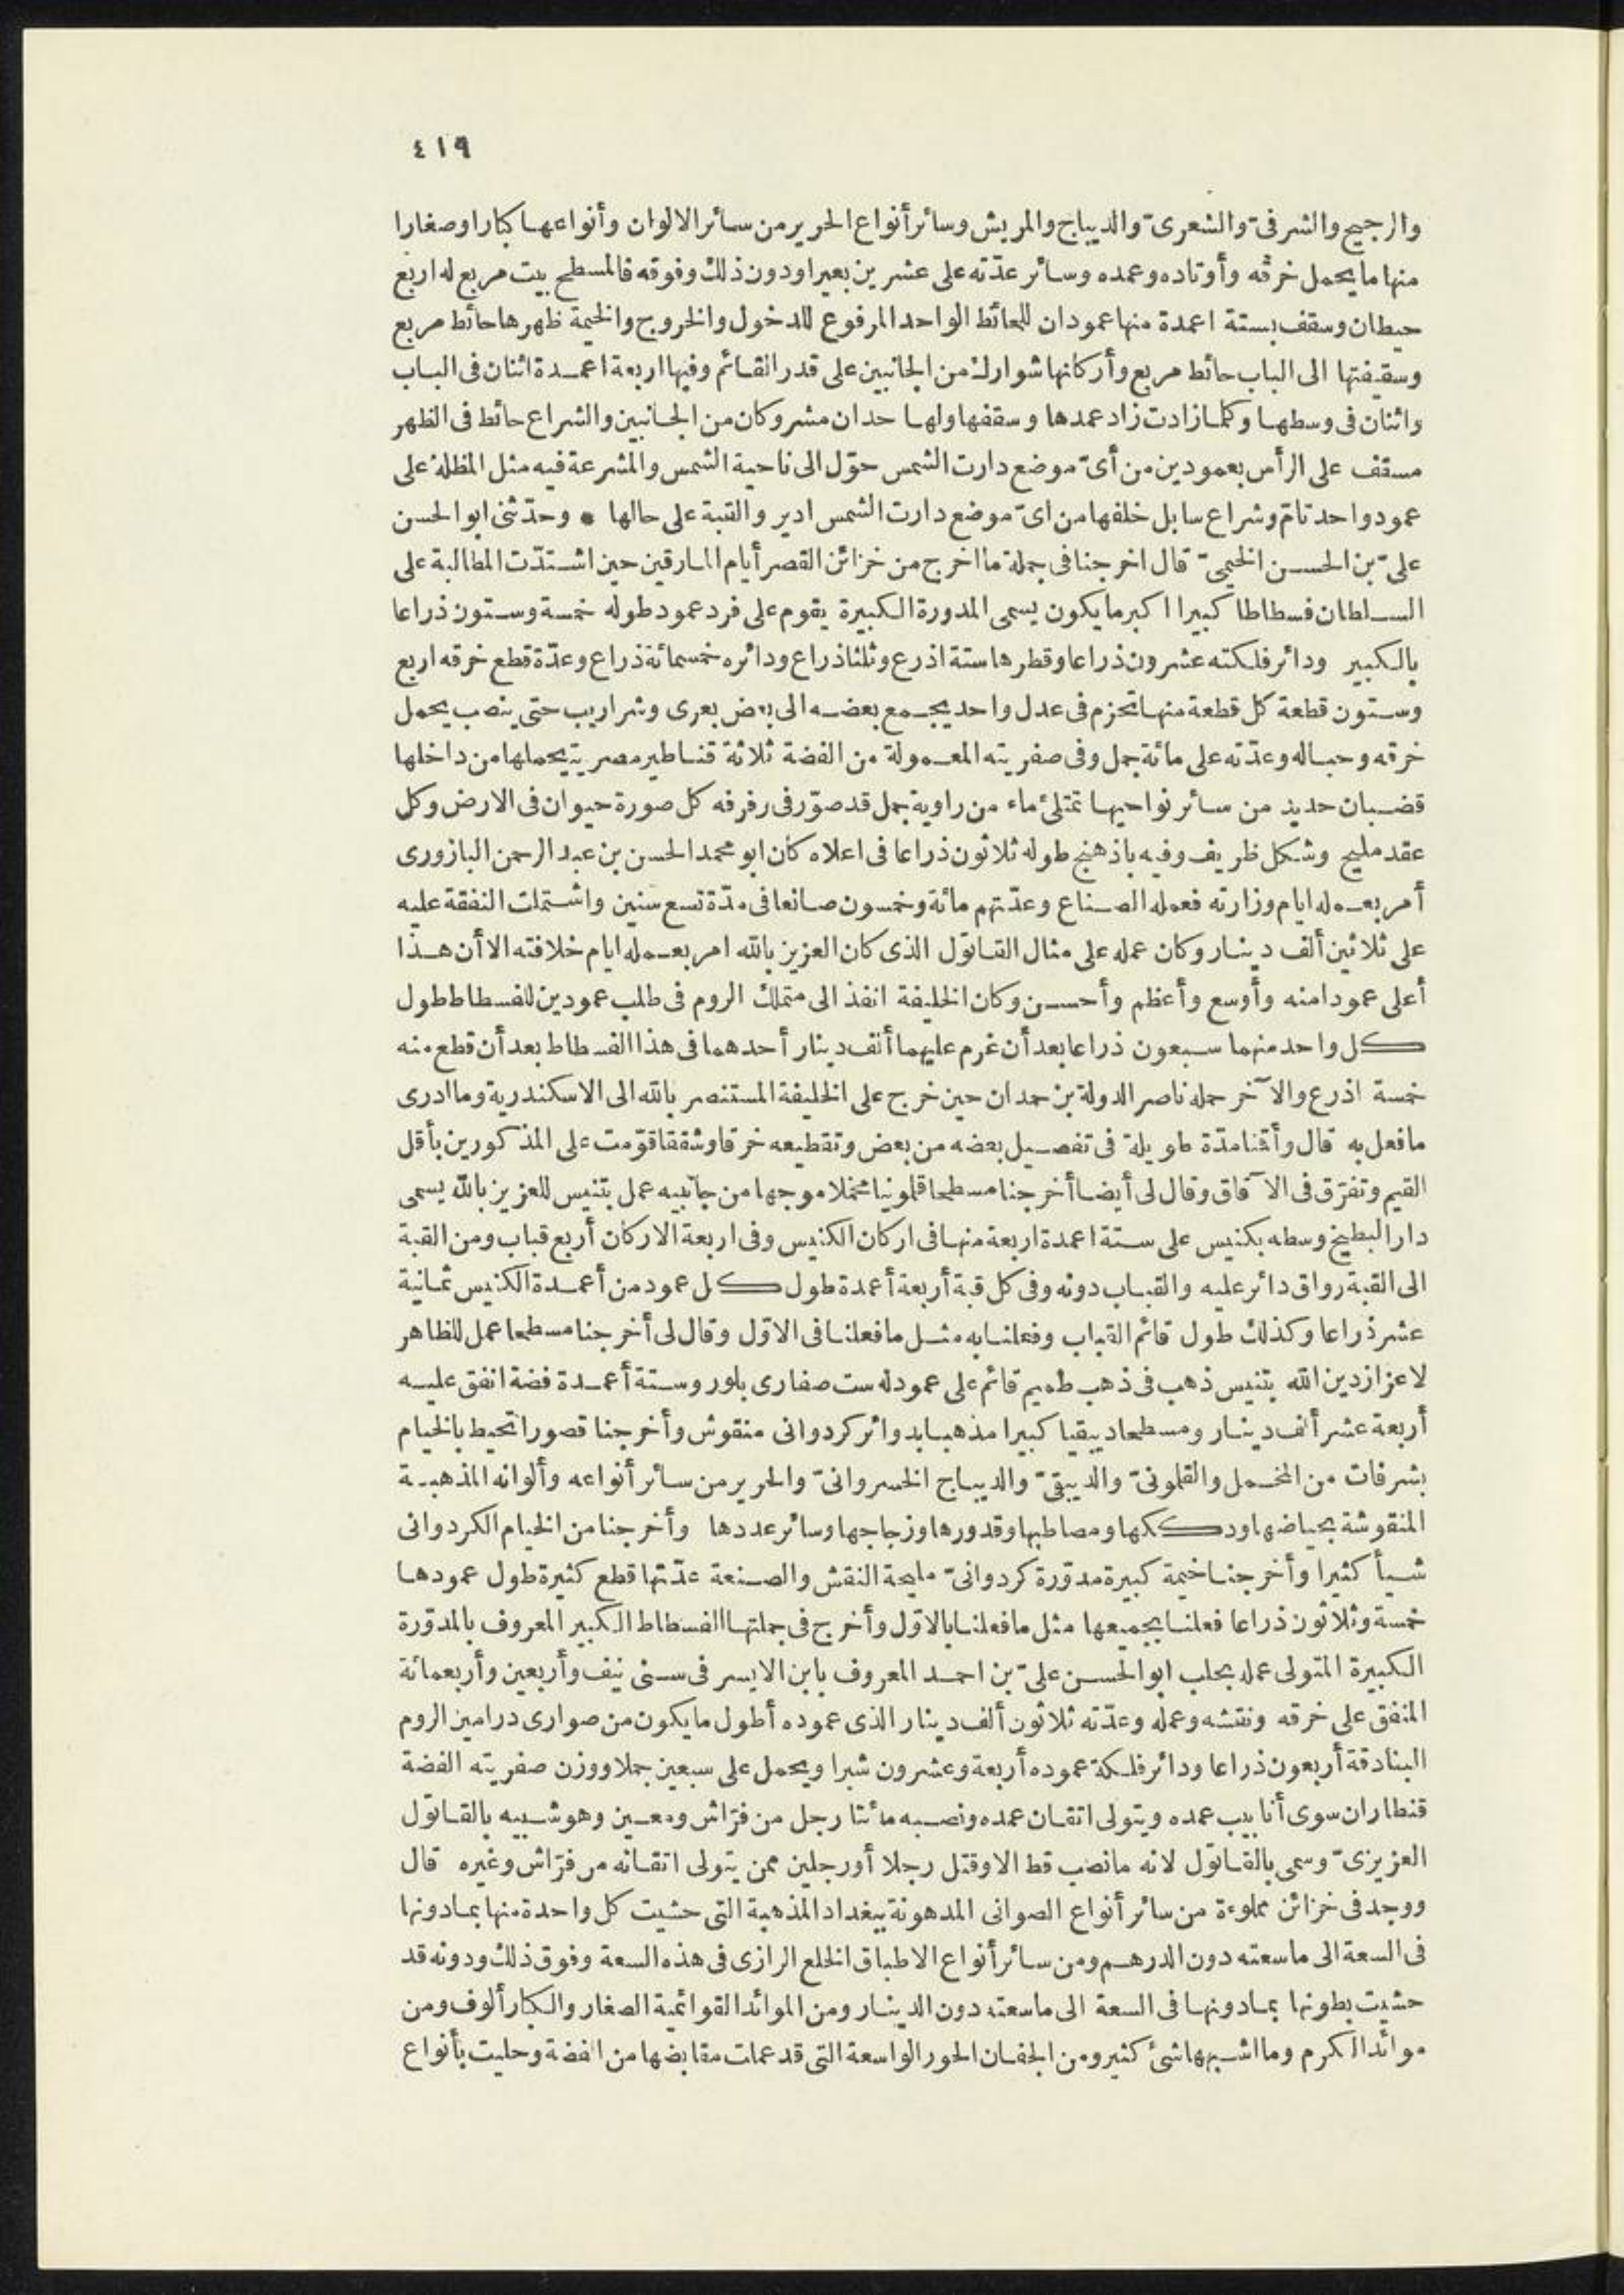 ٤١٩
والرجيح والشرفىّ والشعرىّ والديباج والمريش وسائر أنواع الحرير من سائر الالوان وأنواعها كبارا وصغارا
منها ما يحمل خرقه وأوتاده وعمده وسائر عدّته على عشرين بعيرا ودون ذلك وفوقه فالمسطح بيت مربع له اربع
حيطان وسقف بستة اعمدة منها عمودان للحائط الواحد المرفوع للدخول والخروج والخيمة ظهرها حائط مربع
وسقيفتها الى الباب حائط مربع وأركانها شوارك من الجانبين على قدر القائم وفيها اربعة اعمدة اثنان فى الباب
واثنان فى وسطها وكلما زادت زاد عمدها وسقفها ولها حدان مشروكان من الجانبين والشراع حائط فى الظهر
مسقف على الرأس بعمودين من أىّ موضع دارت الشمس حوّل الى ناحية الشمس والمشرعة فيه مثل المظلة على
عمود واحد تامّ وشراع سابل خلفها من اىّ موضع دارت الشمس ادير والقبة على حالها * وحدّثنى ابو الحسن
علىّ بن الحسن الخيمىّ قال اخرجنا فى جملة ما اخرج من خزائن القصر أيام المارقين حين اشتدّت المطالبة على
السلطان فسطاطا كبيرا اكبر ما يكون يسمى المدورة الكبيرة يقوم على فرد عمود طوله خمسة وستون ذراعا
بالكبير ودائر فلكته عشرون ذراعا وقطرها ستة اذرع وثلثا ذراع ودائره خمسمائة ذراع وعدّة قطع خرقه اربع
وستون قطعة كل قطعة منها تحزم فى عدل واحد يجمع بعضه الى بعض بعرى وشراريب حتى ينصب يحمل
خرقه وحباله وعدّته على مائة جمل وفى صفريته المعمولة من الفضة ثلاثة قناطير مصرية يحملها من داخلها
قضبان حديد من سائر نواحيها تمتلئ ماء من راوية جمل قد صوّر فى رفرفه كل صورة حيوان فى الارض وكل
عقد مليح وشكل ظريف وفيه باذهنج طوله ثلاثون ذراعا فى اعلاه كان ابو محمد الحسن بن عبد الرحمن اليازورى
أمر بعمله ايام وزارته فعمله الصناع وعدّتهم مائة وخمسون صانعا فى مدّة تسع سنين واشتملت النفقة عليه
على ثلاثين ألف دينار وكان عمله على مثال القاتول الذى كان العزيز بالله امر بعمله ايام خلافته الا أن هذا
أعلى عمودا منه وأوسع وأعظم وأحسن وكان الخليفة انفذ الى متملك الروم فى طلب عمودين للفسطاط طول
كل واحد منهما سبعون ذراعا بعد أن غرم عليهما ألف دينار أحدهما فى هذا الفسطاط بعد أن قطع منه
خمسة اذرع والآخر حمله ناصر الدولة بن حمدان حين خرج على الخليفة المستنصر بالله الى الاسكندرية وما ادرى
ما فعل به قال وأقنا مدّة طويلة فى تفصيل بعضه من بعض وتقطيعه خرقا وشققا قوّمت على المذكورين بأقل
القيم وتفرّق فى الآفاق وقال لى أيضا أخرجنا مسطحا قلمونيا مخملا موجها من جانبيه عمل بتنيس للعزيز بالله يسمى
دار البطيخ وسطه بكنيس على ستة اعمدة اربعة منها فى اركان الكنيس وفى اربعة الاركان أربع قباب ومن القبة
الى القبة رواق دائر عليه والقباب دونه وفى كل قبة أربعة أعمدة طول كل عمود من أعمدة الكنيس ثمانية
عشر ذراعا وكذلك طول قائم القباب وفعلنا به مثل ما فعلنا فى الاوّل وقال لى أخرجنا مسطحا عمل للظاهر
لاعزاز دين الله بتنيس ذهب فى ذهب طميم قائم على عمود له ست صفارى بلور وستة أعمدة فضة انفق عليه
أربعة عشر ألف دينار ومسطحا دبيقيا كبيرا مذهبا بدوائر كردوانى منقوش وأخرجنا قصورا تحيط بالخيام
بشرفات من المخمل والقلمونىّ والدبيقىّ والديباج الخسروانىّ والحرير من سائر أنواعه وألوانه المذهبة
المنقوشة بحياضها ودككها ومصاطبها وقدورها وزجاجها وسائر عددها وأخرجنا من الخيام الكردوانى
شيأ كثيرا وأخرجنا خيمة كبيرة مدوّرة كردوانىّ مليحة النقش والصنعة عدّتها قطع كثيرة طول عمودها
خمسة وثلاثون ذراعا فعلنا بجميعها مثل ما فعلنا بالاوّل وأخرج فى جملتها الفسطاط الكبير المعروف بالمدوّرة
الكبيرة المتولى عمله بحلب ابو الحسن علىّ بن احمد المعروف بابن الايسر فى سنى نيف وأربعين وأربعمائة
المنفق على خرقه ونقشه وعمله وعدّته ثلاثون ألف دينار الذى عموده أطول ما يكون من صوارى درامين الروم
البنادقة أربعون ذراعا ودائر فلكة عموده أربعة وعشرون شبرا ويحمل على سبعين جملا ووزن صفريته الفضة
قنطاران سوى أنابيب عمده ويتولى اتقان عمده ونصبه مائتا رجل من فرّاش ومعين وهو شبيه بالقاتول
العزيزىّ وسمى بالقاتول لانه ما نصب قط الا وقتل رجلا أو رجلين ممن يتولى اتقانه من فرّاش وغيره قال
ووجد فى خزائن مملوءة من سائر أنواع الصوانى المدهونة ببغداد المذهبة التى حشيت كل واحدة منها بما دونها
فى السعة الى ما سعته دون الدرهم ومن سائر أنواع الاطباق الخلع الرازى فى هذه السعة وفوق ذلك ودونه قد
حشيت بطونها بما دونها فى السعة الى ما سعته دون الدينار ومن الموائد القوائمية الصغار والكبار ألوف ومن
موائد الكرم وما اشبهها شئ كثير ومن الجفان الحور الواسعة التى قد عملت مقابضها من الفضة وحليت بأنواع